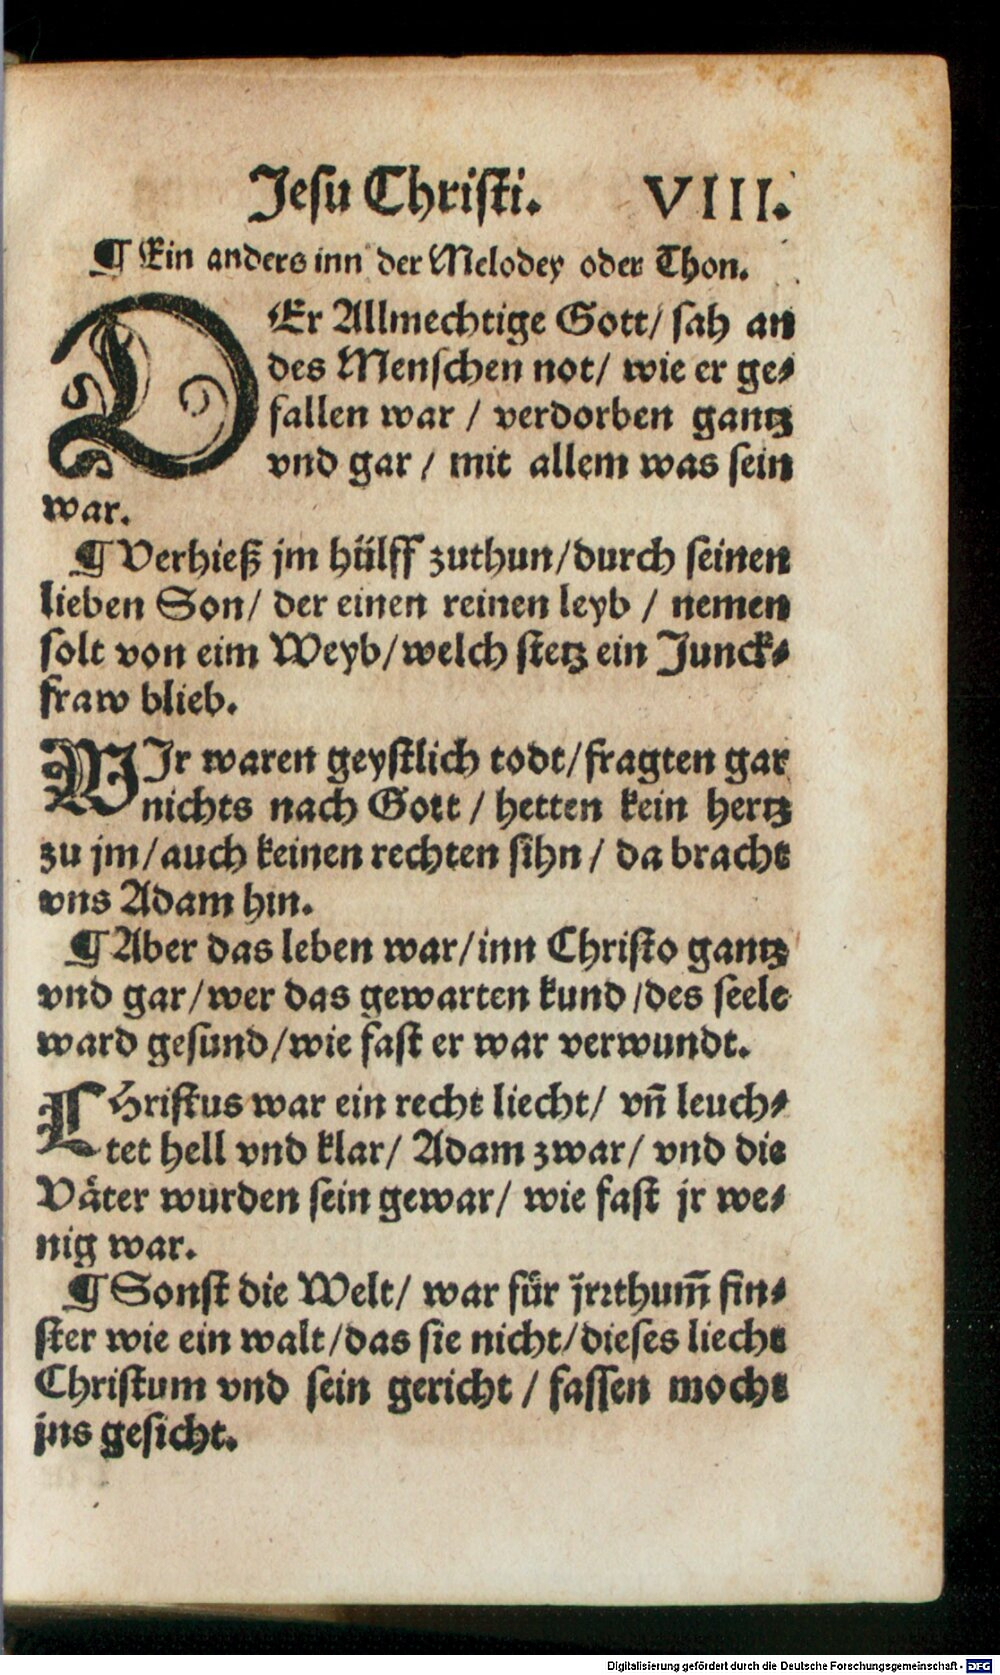 Jesu Christi. VIII.
¶ Ein anders inn der Melodey oder Thon.
DEr Allmechtige Gott/ sah an
des Menschen not/ wie er ge⸗
fallen war / verdorben gantz
vnd gar / mit allem was sein
war.
¶ Verhieß jm hülff zuthun/durch seinen
lieben Son/ der einen reinen leyb / nemen
solt von eim Weyb/welch stetz ein Junck⸗
fraw blieb.
WJr waren geystlich todt/fragten gar
nichts nach Gott / hetten kein hertz
zu jm/auch keinen rechten sihn / da bracht
vns Adam hin.
¶ Aber das leben war/inn Christo gantz
vnd gar/wer das gewarten kund/des seele
ward gesund/wie fast er war verwundt.
CHristus war ein recht liecht/ vn̄ leuch⸗
tet hell vnd klar/ Adam zwar/ vnd die
Väter wurden sein gewar/ wie fast jr we⸗
nig war.
¶ Sonst die Welt/ war für jrꝛthum̄ fin⸗
ster wie ein walt/das sie nicht/dieses liecht
Christum vnd sein gericht / fassen mocht
jns gesicht.
Digitalisierung gefördert durch die Deutsche Forschungsgemeinschaft - DFG